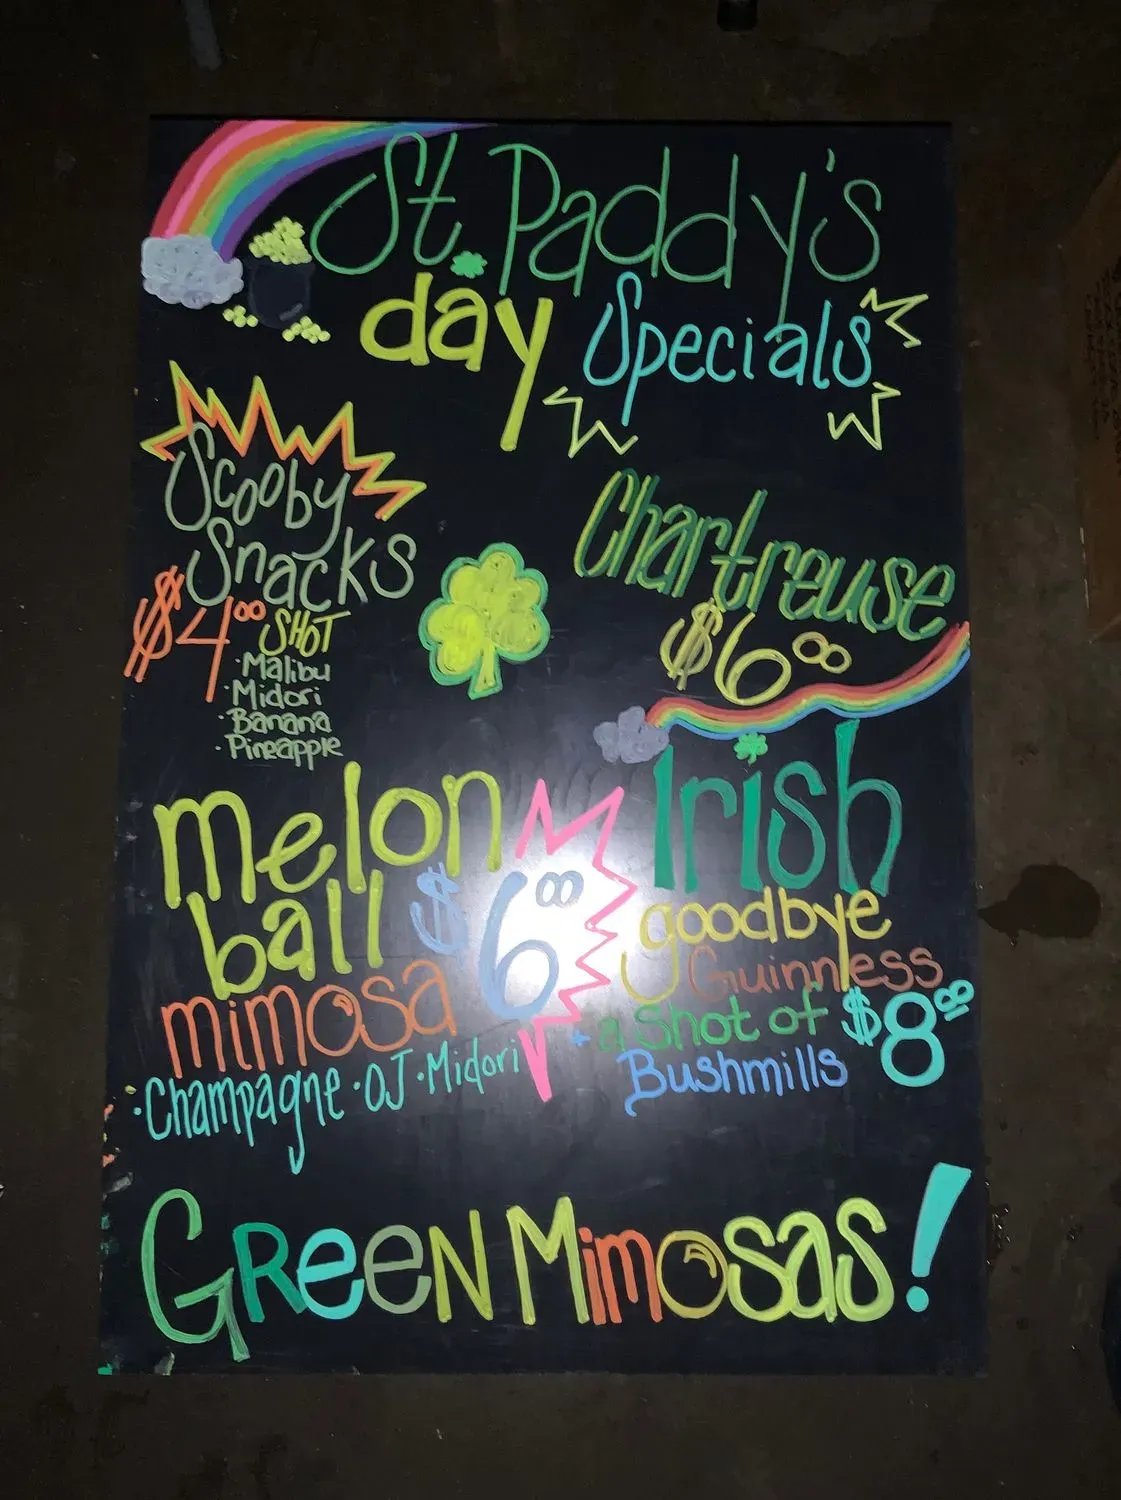 St. Paddy's
day Specials
Scooby
Snacks
$4.00 SHOT
· Malibu
· Midori
· Banana
· Pineapple
Chartreuse
$6.00
melon
ball $6.00
mimosa
· Champagne · OJ · Midori
Irish
goodbye
Guinness
+ a Shot of $8.00
Bushmills
GReeN MimoSas!